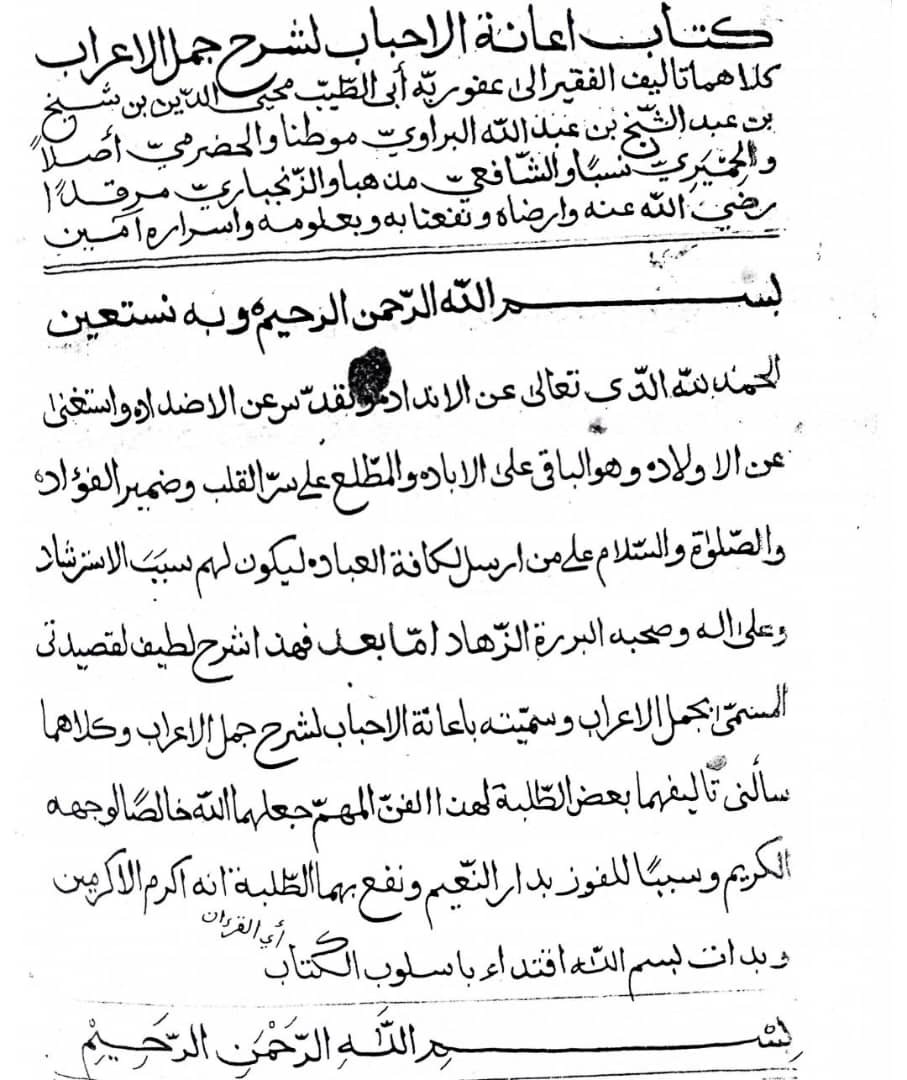 كتاب اعانة الاحباب لشرح جمل الاعراب
كلاهما تاليف الفقير الى عفو ربّه أبى الطّيّب محيى الدّين بن شيخ
بن عبد الشّيخ بن عبد الله البراويّ موطنا والحضرميّ أصلاً
والحِمْيَرِيّ نسبًا والشّافعيّ مذهبا والزّنجباريّ مرقدًا
رضي الله عنه وارضاه ونفعنا به وبعلومه واسراره آمين
بســـم الله الرّحمن الرحيم ه وبه نستعين
الحمد لله الذّى تعالى عن الانداد وتقدّس عن الاضداد ه واستغنى
عن الاولاد ه وهو الباقى على الاباد ه والمطّلع على سرّ القلب وضمير الفؤاد ه
والصّلوٰة والسّلام على من ارسل لكافة العباد ه ليكون لهم سبَبَ الاسترشاد
وعلى اٰله وصحبه البررة الزّهاد امّا بعد فهذا شرح لطيف لقصيدتى
المسمّىٰ بجمل الاعراب وسمّيته باعانة الاحباب لشرح جمل الاعراب وكلاهما
سألنى تأليفهما بعض الطّلبة لهذا الفنّ المهمّ جعلهما الله خالصًا لوجهه
الكريم وسببًا للفوز بدار النّعيم ونفع بهما الطّلبة انه اكرم الاكرمين
أي القرءان
وبدات بسم الله اقتداء باسلوب الكتاب
بِسْـــمِ اللّٰهِ الرَّحْمٰنِ الرَّحِيْمِ